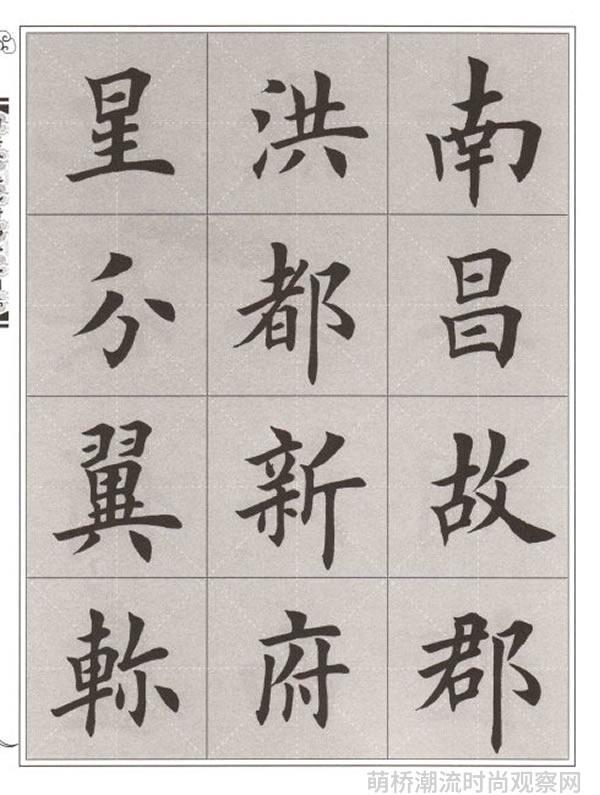 南昌故郡
洪都新府
星分翼軫
萌桥潮流时尚观察网